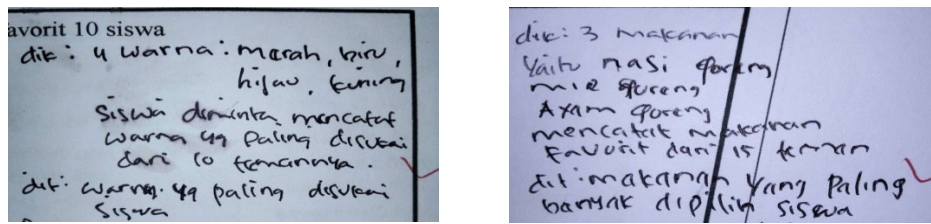 avorit 10 siswa
dik : 4 warna : merah, biru,
hijau, kuning
siswa diminta mencatat
warna yg paling disukai
dari 10 temannya.
dit : warna yg paling disukai
siswa
dik : 3 makanan
yaitu nasi goreng
mie goreng
Ayam goreng
mencatat makanan
favorit dari 15 teman
dit : makanan yang paling
banyak dipilih siswa